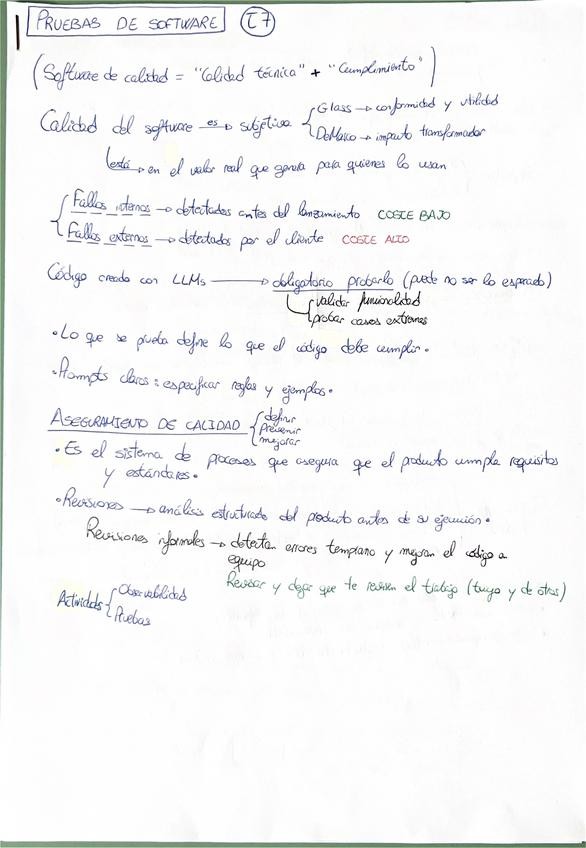 PRUEBAS DE SOFTWARE T7
(Software de calidad = "Calidad técnica" + "Cumplimiento")
Calidad del software es → subjetiva { Glass → conformidad y utilidad
DeMarco → impacto transformador
está → en el valor real que genera para quienes lo usan
{ Fallos internos → detectados antes del lanzamiento COSTE BAJO
Fallos externos → detectados por el cliente COSTE ALTO
Código creado con LLMs → obligatorio probarlo (puede no ser lo esperado)
{ validar funcionalidad
probar casos extremos
• Lo que se prueba define lo que el código debe cumplir.
• Prompts claros: especificar reglas y ejemplos.
ASEGURAMIENTO DE CALIDAD { definir
prevenir
mejorar
• Es el sistema de procesos que asegura que el producto cumple requisitos
y estándares.
• Revisiones → análisis estructurado del producto antes de su ejecución.
Revisiones informales → detectan errores temprano y mejoran el código a
equipo
Revisar y dejar que te revisen el trabajo (tuyo y de otros)
Actividades { Observabilidad
Pruebas